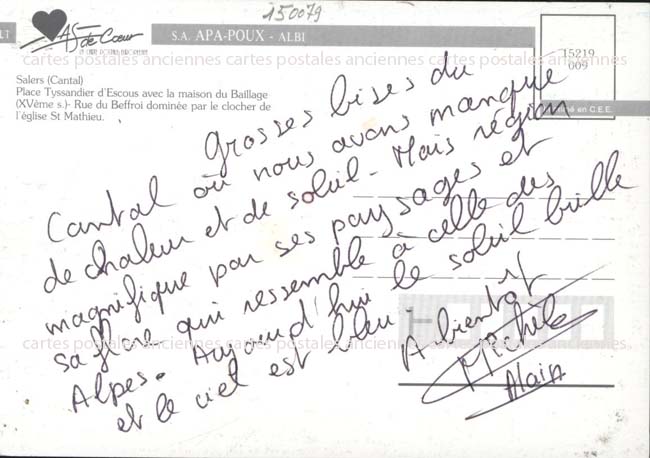 150079
AS de Cœur
S.A. APA-POUX - ALBI
15219
009
Salers (Cantal)
Place Tyssandier d'Escous avec la maison du Baillage
(XVème s.)- Rue du Beffroi dominée par le clocher de
l'église St Mathieu.
imprimé en C.E.E.
cartes postales anciennes cartes postales anciennes cartes postales anciennes
Grosses bises du
Cantal où nous avons manqué
de chaleur et de soleil - Mais région
magnifique par ses paysages et
sa flore qui ressemble à celle des
Alpes. Aujourd'hui le soleil brille
et le ciel est bleu.
A bientôt
Michèle
Alain
cartes postales anciennes cartes postales anciennes cartes postales anciennes